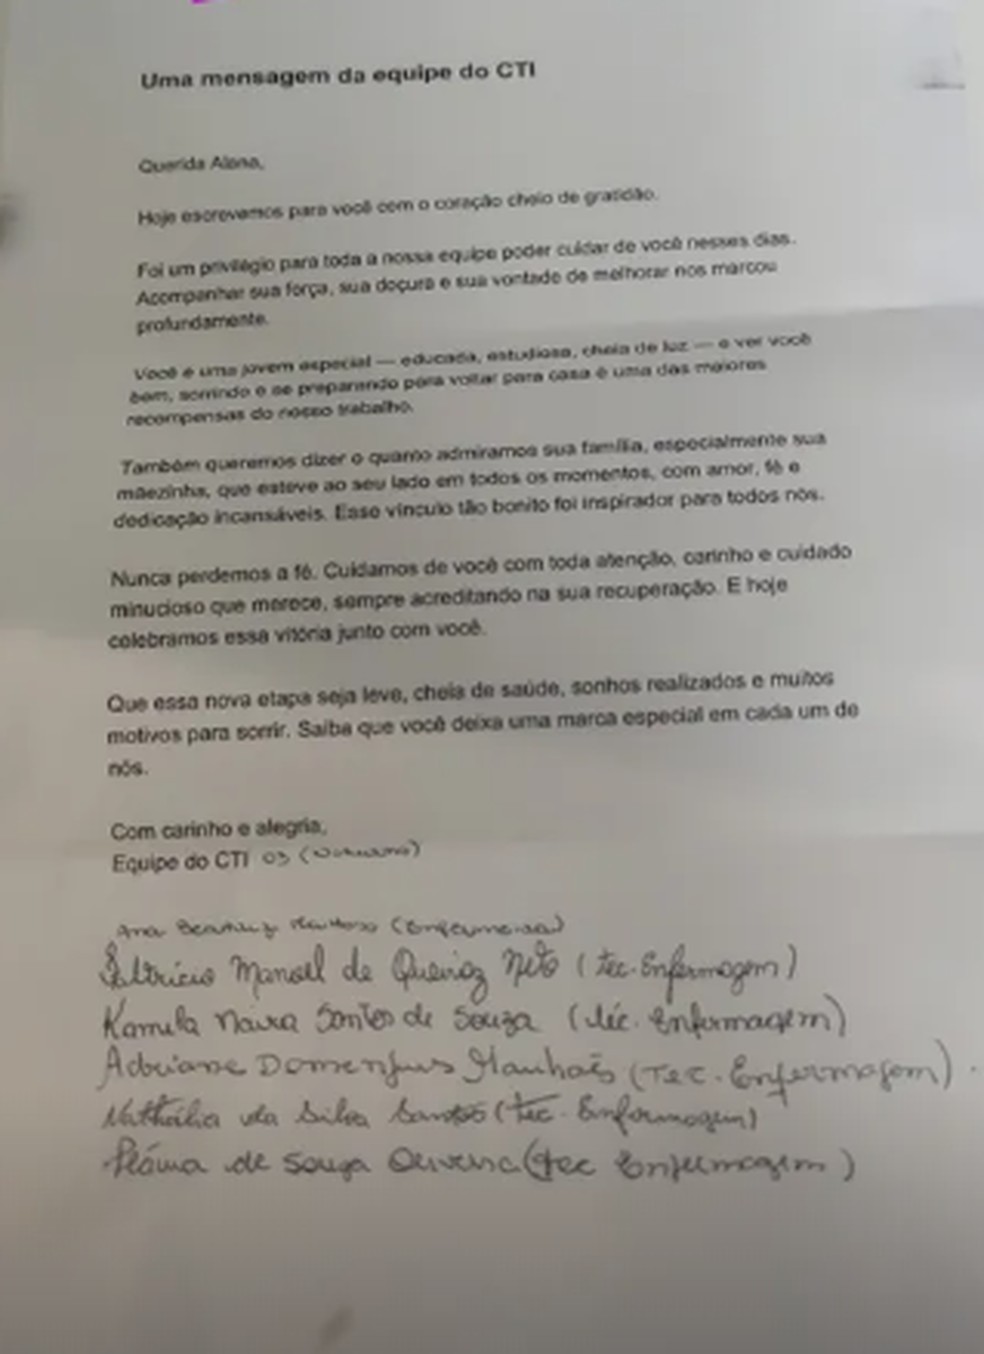 Uma mensagem da equipe do CTI
Querida Alana,
Hoje escrevemos para você com o coração cheio de gratidão.
Foi um privilégio para toda a nossa equipe poder cuidar de você nesses dias.
Acompanhar sua força, sua doçura e sua vontade de melhorar nos marcou
profundamente.
Você é uma jovem especial — educada, estudiosa, cheia de luz — e ver você
bem, sorrindo e se preparando para voltar para casa é uma das maiores
recompensas do nosso trabalho.
Também queremos dizer o quanto admiramos sua família, especialmente sua
mãezinha, que esteve ao seu lado em todos os momentos, com amor, fé e
dedicação incansáveis. Esse vínculo tão bonito foi inspirador para todos nós.
Nunca perdemos a fé. Cuidamos de você com toda atenção, carinho e cuidado
minucioso que merece, sempre acreditando na sua recuperação. E hoje
celebramos essa vitória junto com você.
Que essa nova etapa seja leve, cheia de saúde, sonhos realizados e muitos
motivos para sorrir. Saiba que você deixa uma marca especial em cada um de
nós.
Com carinho e alegria,
Equipe do CTI 03 (Noturno)
Ana Beatriz (Enfermeira)
Manoel de Queiroz Neto (tec. Enfermagem)
Kamila Naira Santos de Souza (téc. Enfermagem)
Adriane Manhães (Tec. Enfermagem).
Nathália da Silva Santos (Tec. Enfermagem)
de Souza Oliveira (tec Enfermagem)